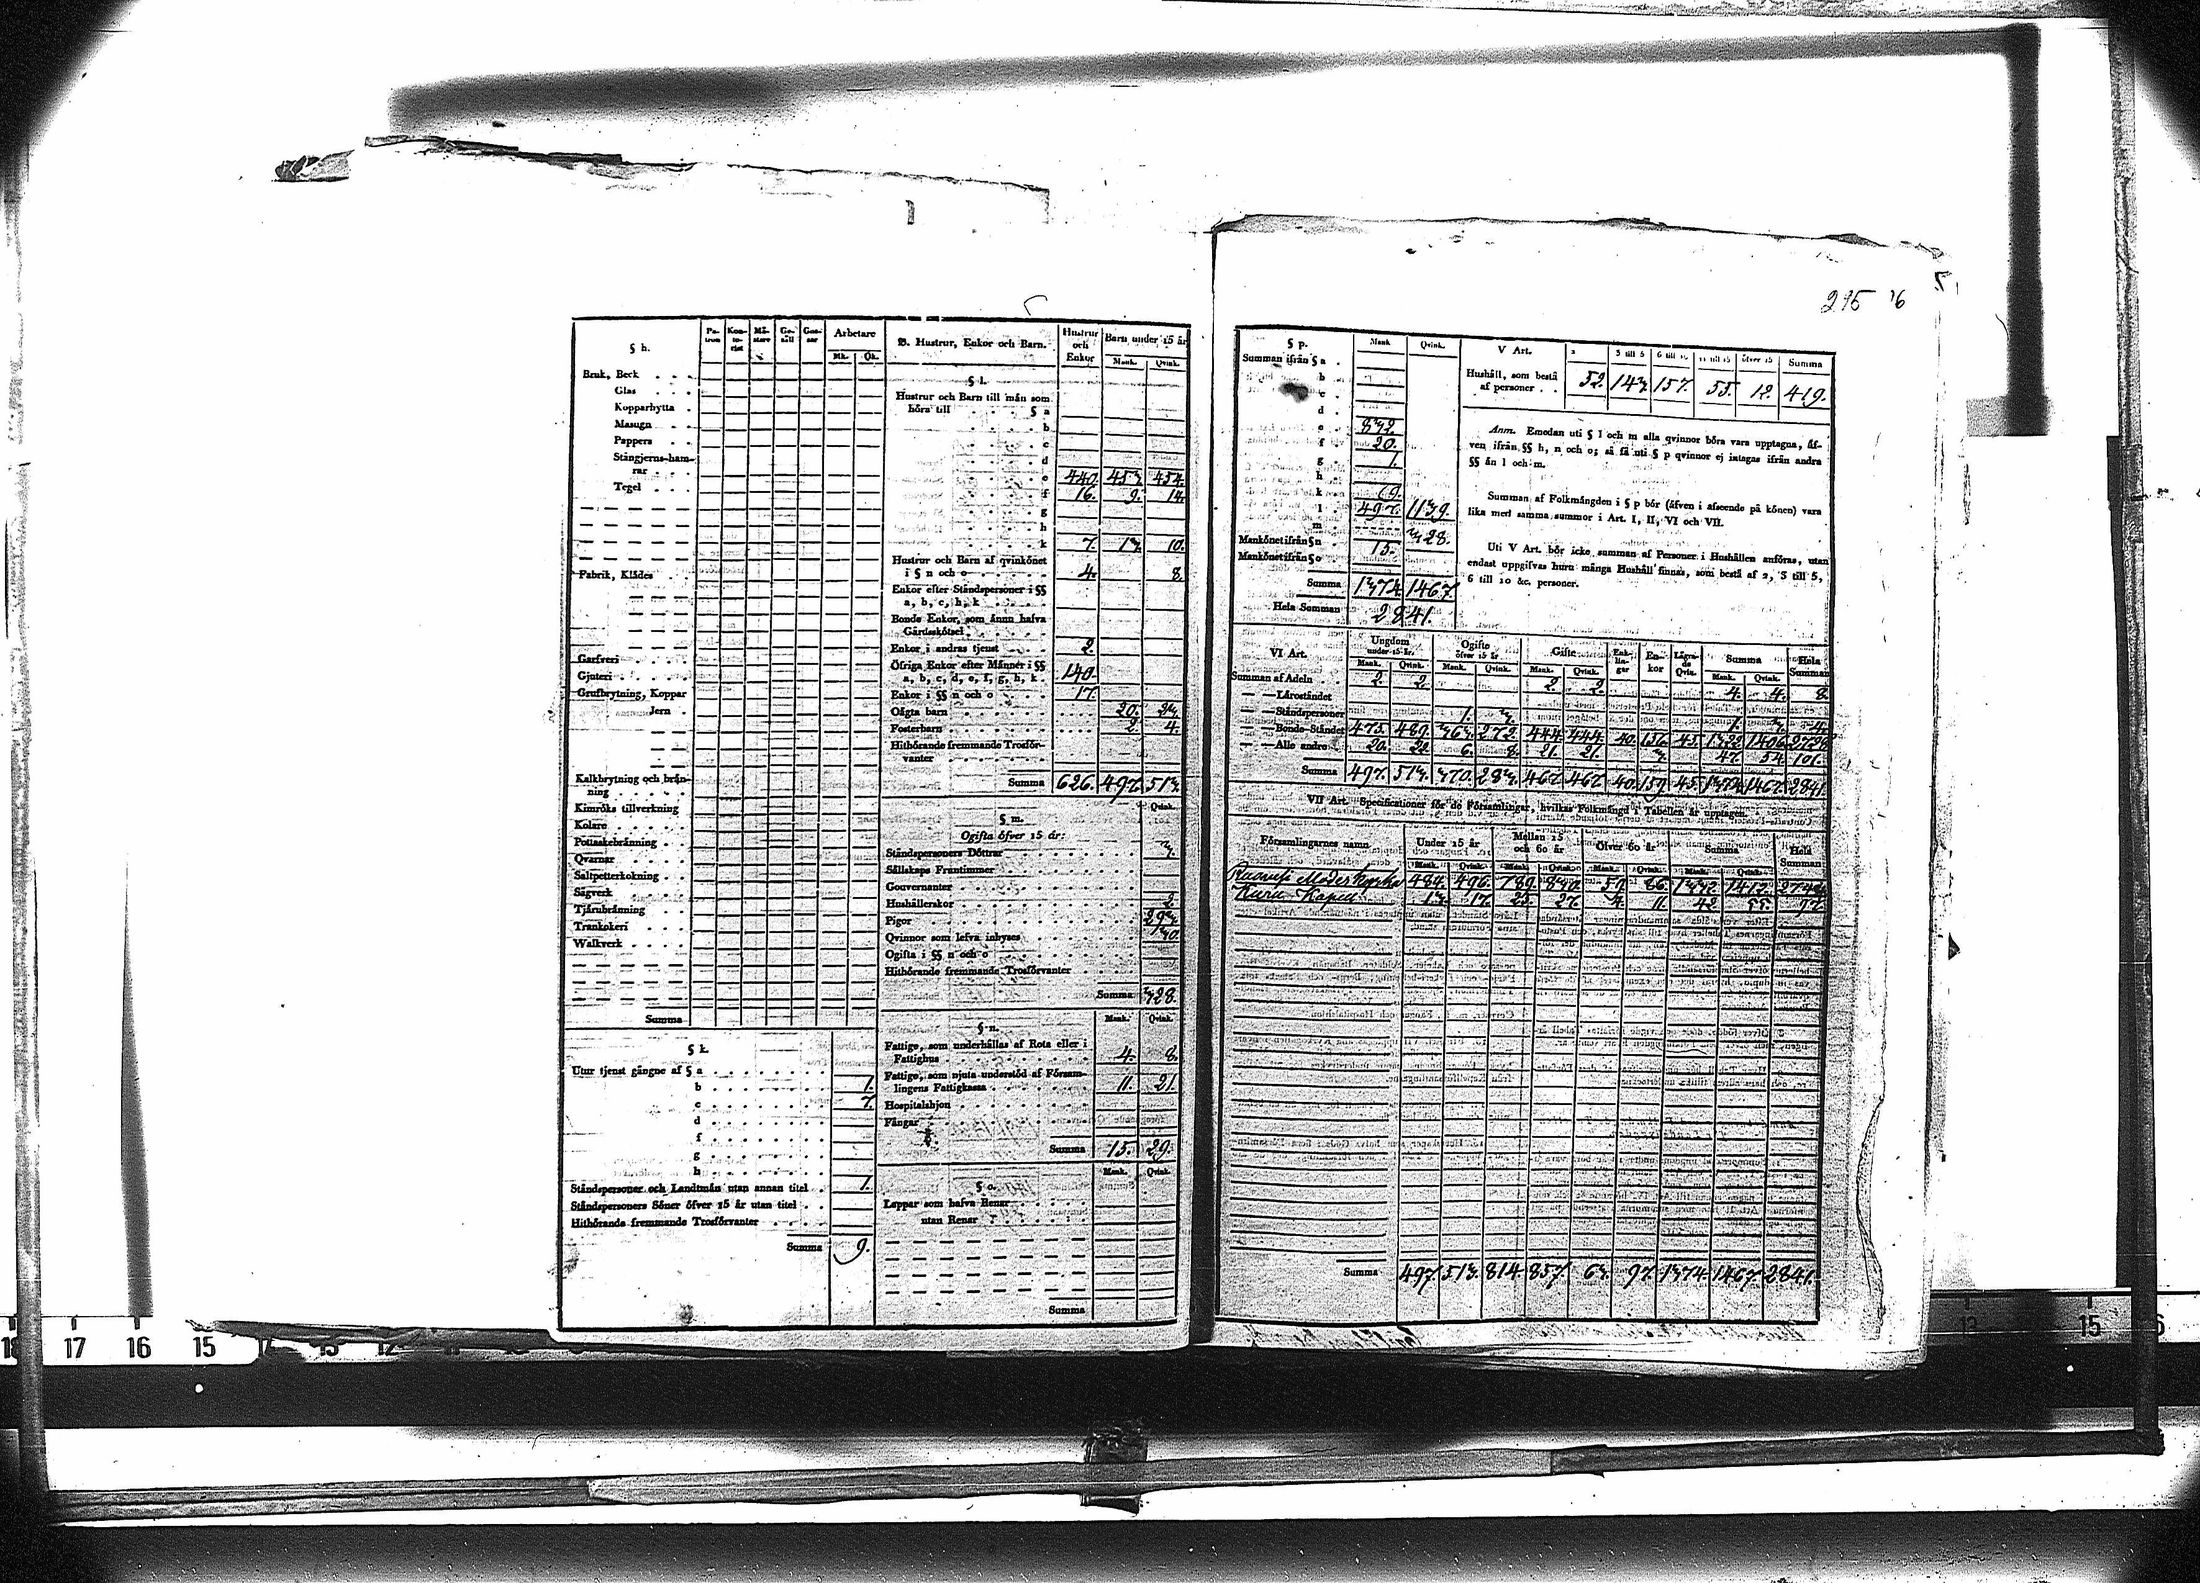 275 76
§ h.
Pa-
tron
Kon-
to-
rist
Mä-
stare
Ge-
säll
Gos-
sar
Arbetare
Mk. Qk.
Bruk, Beck
Glas
Kopparhytta
Masugn
Pappers
Stångjerns-ham-
rar
Tegel
Fabrik, Klådes
Garfveri
Gjuteri
Grufbrytning, Koppar
Jern
Kalkbrytning och brän-
ning
Kimröks tillverkning
Kolare
Pottaskebränning
Qvarnar
Saltpetterkokning
Sågverk
Tjärubränning
Trankokeri
Walkverk
Summa
§ k.
Utur tjenst gångne af § a
b 1.
c 7.
d
f
g
h
Ståndspersoner och Landtmän utan annan titel 1.
Ståndspersoners Söner öfver 15 år utan titel
Hithörande fremmande Trosförvanter
Summa 9.
B. Hustrur, Enkor och Barn.
Hustrur
och
Enkor
Barn under 15 år
Mank. Qvink.
§ l.
Hustrur och Barn till män som
höra till § a
b
c
d
e 440. 453. 454.
f 16. 9. 14.
g
h
k 7. 13. 10.
Hustrur och Barn af qvinkönet
i § n och o 4. 8.
Enkor efter Ståndspersoner i §§
a, b, c, h, k
Bonde Enkor, som ännu hafva
Gårdsskötsel
Enkor i andras tjenst 2.
Öfriga Enkor efter Männer i §§
a, b, c, d, e, f, g, h, k 140.
Enkor i §§ n och o 17.
Oägta barn 20. 23.
Fosterbarn 2. 4.
Hithörande fremmande Trosför-
vanter
Summa 626. 497. 513.
Qvink.
§ m.
Ogifta öfver 15 år:
Ståndspersoners Döttrar 3.
Sällskaps Fruntimmer
Gouvernanter
Hushållerskor 2.
Pigor 293.
Qvinnor som lefva inhyses 30.
Ogifta i §§ n och o
Hithörande fremmande Trosförvanter
Summa 328.
Mank. Qvink.
§ n.
Fattige, som underhållas af Rota eller i
Fattighus 4. 8.
Fattige, som njuta understöd af Försam-
lingens Fattigkassa 11. 21.
Hospitalshjon
Fångar
Summa 15. 29.
Mank. Qvink.
§ o.
Lappar som hafva Renar
utan Renar
Summa
§ p. Mank Qvink.
Summan ifrån § a
b
c
d
e 832.
f 20.
g 1.
h
k 9.
l 497. 1139.
m 328.
Mankönet ifrån § n 15.
Mankönet ifrån § o
Summa 1374. 1467.
Hela Summan 2841.
V Art. 2 3 till 5 6 till 10 11 till 15 öfver 15 Summa
Hushåll, som bestå
af personer 52. 143. 157. 55. 12. 419.
Anm. Emedan uti § l och m alla qvinnor böra vara upptagna, äf-
ven ifrån §§ h, n och o; så få uti § p qvinnor ej intagas ifrån andra
§§ än l och m.
Summan af Folkmängden i § p bör (äfven i afseende på könen) vara
lika med samma summor i Art. I, II, VI och VII.
Uti V Art. bör icke summan af Personer i Hushållen anföras, utan
endast uppgifvas huru många Hushåll finnas, som bestå af 2, 3 till 5,
6 till 10 &c. personer.
VI Art.
Ungdom
under 15 år.
Ogifte
öfver 15 år
Gifte
Enk-
lin-
gar
En-
kor
Lägra-
de
Qvin.
Summa
Hela
Summan
Mank. Qvink. Mank. Qvink. Mank. Qvink. Mank. Qvink.
Summan af Adeln 2. 2. 2. 2. 4. 4. 8.
— — Läroståndet
— — Ståndspersoner 1. 3. 1. 3. 4.
— — Bonde-Ståndet 475. 489. 363. 272. 444. 444. 40. 156. 45. 1322. 1406. 2728.
— — Alle andre 20. 22. 6. 8. 21. 21. 3. 47. 54. 101.
Summa 497. 513. 370. 283. 467. 467. 40. 159. 45. 1374. 1467. 2841.
VII Art. Specificationer för de Församlingar, hvilkas Folkmängd i Tabellen är upptagen.
Församlingarnes namn
Under 15 år
Mellan 15
och 60 år
Öfver 60 år
Summa
Hela
Summan
Mank. Qvink. Mank. Qvink. Mank. Qvink. Mank. Qvink.
Ruovesi Moderkyrka 484. 496. 789. 830. 59. 86. 1332. 1412. 2744.
Kuru Kapell 13. 17. 25. 27. 4. 11. 42. 55. 97.
Summa 497. 513. 814. 857. 63. 97. 1374. 1467. 2841.
18 17 16 15
15